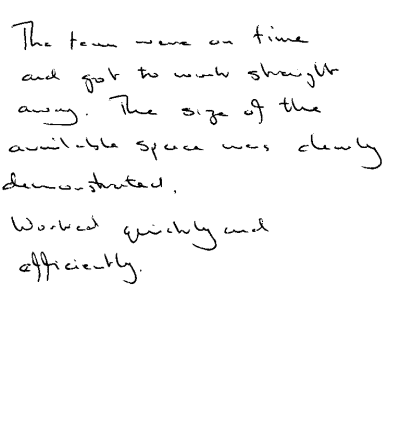 The team were on time
and got to work straight
away. The size of the
available space was clearly
demonstrated.
Worked quickly and
efficiently.